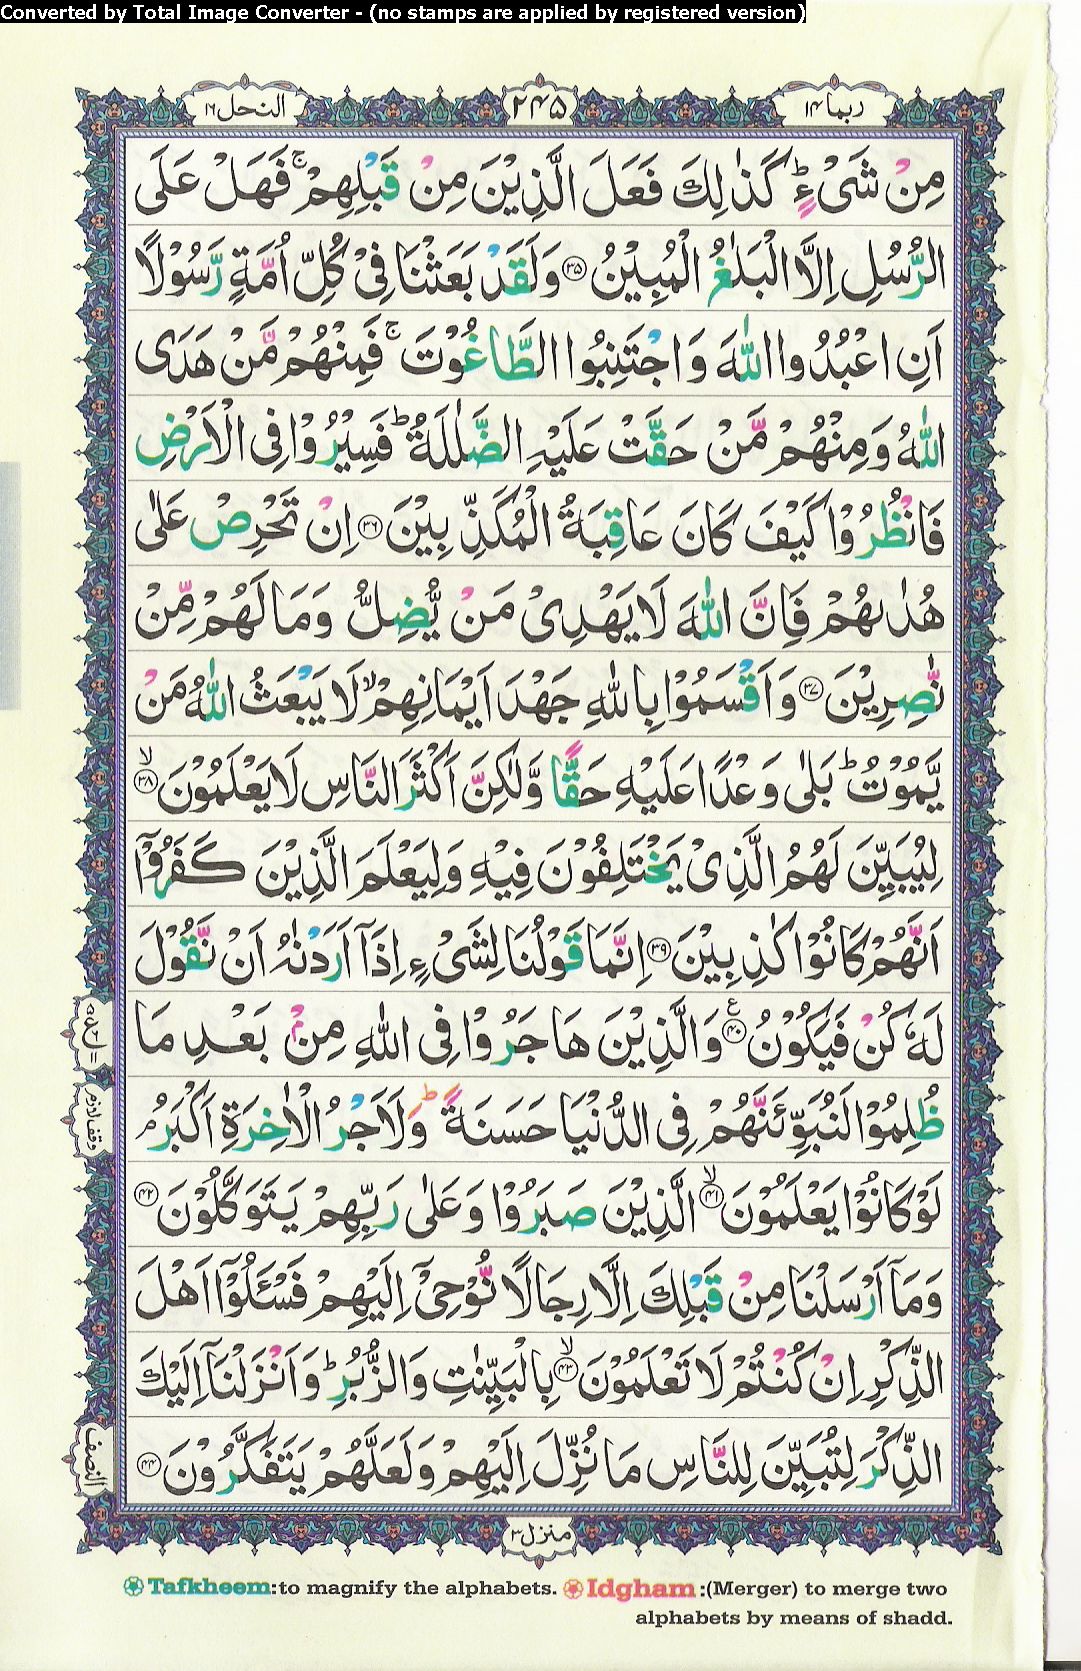 Converted by Total Image Converter - (no stamps are applied by registered version)
ربما ١٤
٢٤٥
النحل ١٦
مِنْ شَیْءٍ ؕ كَذٰلِكَ فَعَلَ الَّذِیْنَ مِنْ قَبْلِهِمْ ۚ فَهَلْ عَلَی
الرُّسُلِ اِلَّا الْبَلٰغُ الْمُبِیْنُ ۳۵ وَلَقَدْ بَعَثْنَا فِیْ كُلِّ اُمَّةٍ رَّسُوْلًا
اَنِ اعْبُدُوا اللّٰهَ وَاجْتَنِبُوا الطَّاغُوْتَ ۚ فَمِنْهُمْ مَّنْ هَدَی
اللّٰهُ وَمِنْهُمْ مَّنْ حَقَّتْ عَلَیْهِ الضَّلٰلَةُ ؕ فَسِیْرُوْا فِی الْاَرْضِ
فَانْظُرُوْا كَیْفَ كَانَ عَاقِبَةُ الْمُكَذِّبِیْنَ ۳۶ اِنْ تَحْرِصْ عَلٰی
هُدٰىهُمْ فَاِنَّ اللّٰهَ لَا یَهْدِیْ مَنْ یُّضِلُّ وَمَا لَهُمْ مِّنْ
نّٰصِرِیْنَ ۳۷ وَاَقْسَمُوْا بِاللّٰهِ جَهْدَ اَیْمَانِهِمْ ۙ لَا یَبْعَثُ اللّٰهُ مَنْ
یَّمُوْتُ ؕ بَلٰی وَعْدًا عَلَیْهِ حَقًّا وَّلٰكِنَّ اَكْثَرَ النَّاسِ لَا یَعْلَمُوْنَ ۙ ۳۸
لِیُبَیِّنَ لَهُمُ الَّذِیْ یَخْتَلِفُوْنَ فِیْهِ وَلِیَعْلَمَ الَّذِیْنَ كَفَرُوْۤا
اَنَّهُمْ كَانُوْا كٰذِبِیْنَ ۳۹ اِنَّمَا قَوْلُنَا لِشَیْءٍ اِذَاۤ اَرَدْنٰهُ اَنْ نَّقُوْلَ
لَهٗ كُنْ فَیَكُوْنُ ۴۰ ع وَالَّذِیْنَ هَاجَرُوْا فِی اللّٰهِ مِنْۢ بَعْدِ مَا
ظُلِمُوْا لَنُبَوِّئَنَّهُمْ فِی الدُّنْیَا حَسَنَةً ؕ وَلَاَجْرُ الْاٰخِرَةِ اَكْبَرُ ۘ
لَوْ كَانُوْا یَعْلَمُوْنَ ۙ ۴۱ الَّذِیْنَ صَبَرُوْا وَعَلٰی رَبِّهِمْ یَتَوَكَّلُوْنَ ۴۲
وَمَاۤ اَرْسَلْنَا مِنْ قَبْلِكَ اِلَّا رِجَالًا نُّوْحِیْۤ اِلَیْهِمْ فَسْـَٔلُوْۤا اَهْلَ
الذِّكْرِ اِنْ كُنْتُمْ لَا تَعْلَمُوْنَ ۙ ۴۳ بِالْبَیِّنٰتِ وَالزُّبُرِ ؕ وَاَنْزَلْنَاۤ اِلَیْكَ
الذِّكْرَ لِتُبَیِّنَ لِلنَّاسِ مَا نُزِّلَ اِلَیْهِمْ وَلَعَلَّهُمْ یَتَفَكَّرُوْنَ ۴۴
وقف لازم
النصف
منزل ٣
Tafkheem:to magnify the alphabets. Idgham :(Merger) to merge two
alphabets by means of shadd.